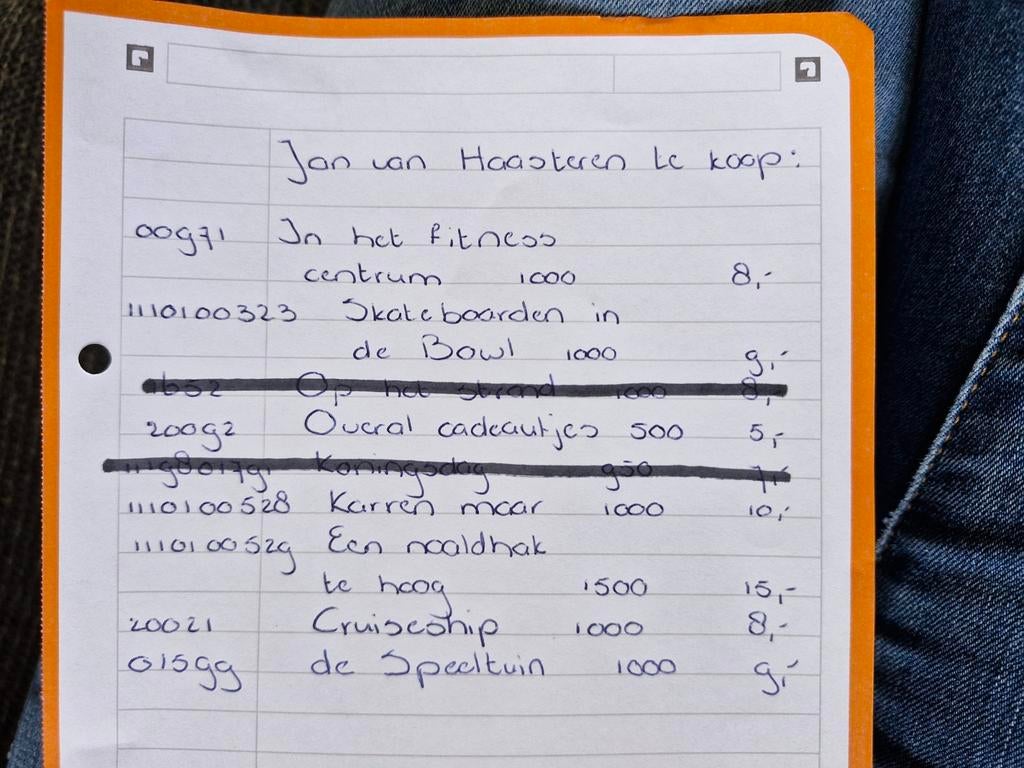 Jan van Haasteren te koop:
00971 In het fitness
centrum 1000 8,-
1110100323 Skateboarden in
de Bowl 1000 9,-
1652 Op het strand 1000 8,-
20092 Overal cadeautjes 500 5,-
Koningsdag 950 7,-
1110100528 Karren maar 1000 10,-
1110100529 Een naaldhak
te hoog 1500 15,-
20021 Cruiseship 1000 8,-
01599 de Speeltuin 1000 9,-